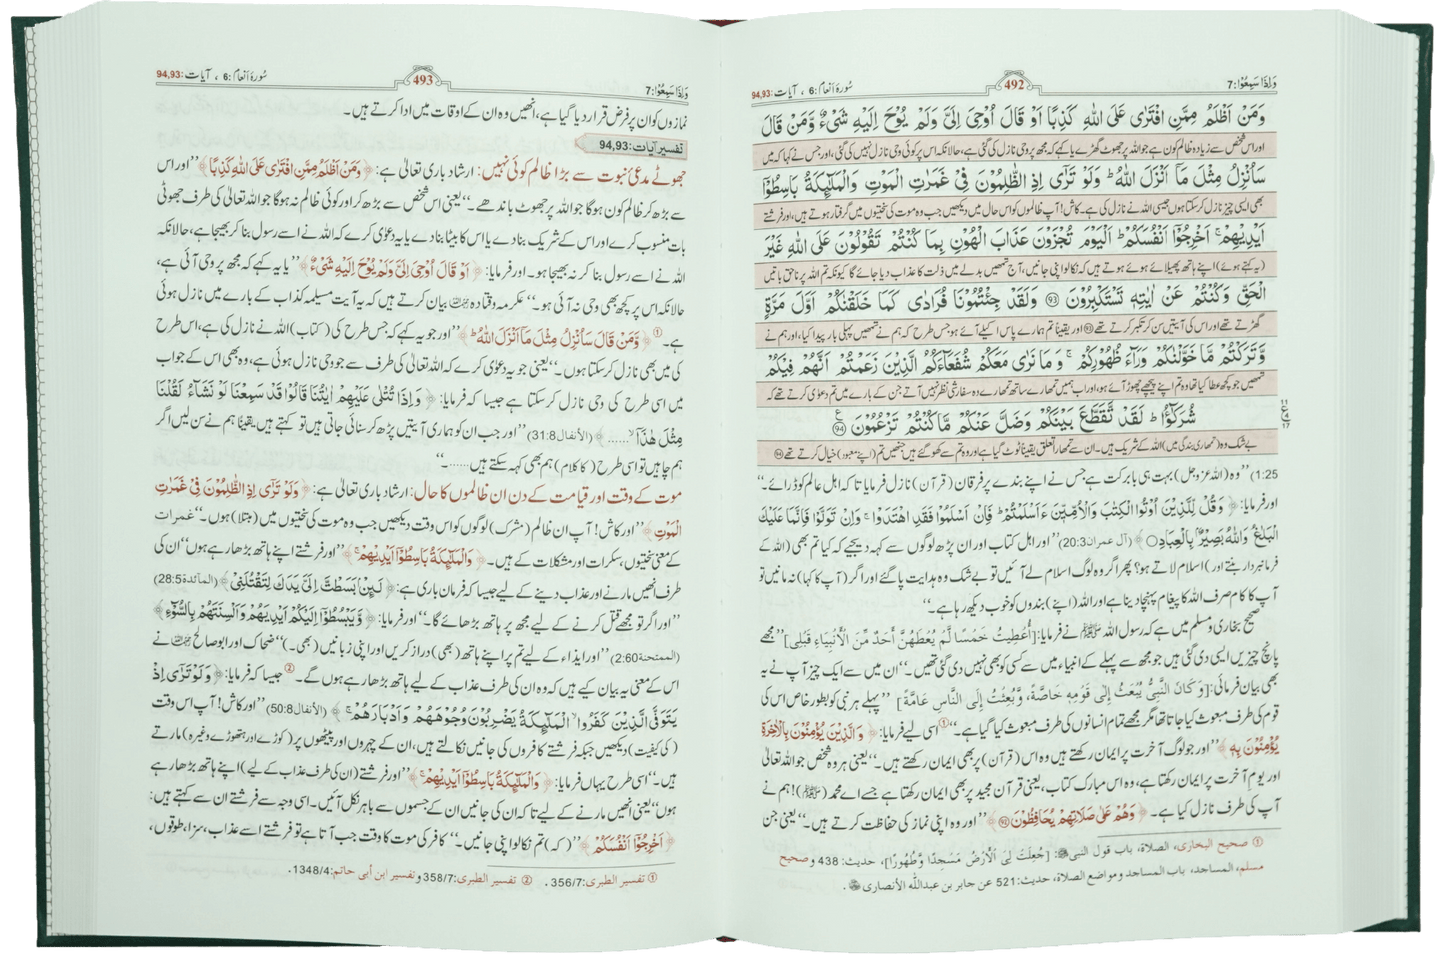 وَاِذَا سَمِعُوْا:7
492
سُورۂ اَنعام:6 ، آیات:94,93
وَمَنْ اَظْلَمُ مِمَّنِ افْتَرٰى عَلَى اللّٰهِ كَذِبًا اَوْ قَالَ اُوْحِيَ اِلَيَّ وَلَمْ يُوْحَ اِلَيْهِ شَيْءٌ وَّمَنْ قَالَ
اور اس شخص سے زیادہ ظالم کون ہے جو اللہ پر جھوٹ گھڑے یا کہے کہ مجھ پر وحی نازل کی گئی ہے، حالانکہ اس پر کوئی وحی نازل نہیں کی گئی، اور جس نے کہا کہ میں
سَاُنْزِلُ مِثْلَ مَآ اَنْزَلَ اللّٰهُ ؕ وَلَوْ تَرٰٓى اِذِ الظّٰلِمُوْنَ فِيْ غَمَرٰتِ الْمَوْتِ وَالْمَلٰٓئِكَةُ بَاسِطُوْٓا
بھی ایسی چیز نازل کر سکتا ہوں جیسی اللہ نے نازل کی ہے۔ کاش! آپ ظالموں کو اس حال میں دیکھیں جب وہ موت کی سختیوں میں گرفتار ہوتے ہیں، اور فرشتے
اَيْدِيْهِمْ ۚ اَخْرِجُوْٓا اَنْفُسَكُمْ ؕ اَلْيَوْمَ تُجْزَوْنَ عَذَابَ الْهُوْنِ بِمَا كُنْتُمْ تَقُوْلُوْنَ عَلَى اللّٰهِ غَيْرَ
(یہ کہتے ہوئے) اپنے ہاتھ پھیلائے ہوئے ہوتے ہیں کہ نکالو اپنی جانیں، آج تمھیں بدلے میں ذلت کا عذاب دیا جائے گا کیونکہ تم اللہ پر ناحق باتیں
الْحَقِّ وَكُنْتُمْ عَنْ اٰيٰتِهٖ تَسْتَكْبِرُوْنَ ﴿93﴾ وَلَقَدْ جِئْتُمُوْنَا فُرَادٰى كَمَا خَلَقْنٰكُمْ اَوَّلَ مَرَّةٍ
گھڑتے تھے اور اس کی آیتیں سن کر تکبر کرتے تھے ﴿93﴾ اور یقیناً تم ہمارے پاس اکیلے آئے ہو جس طرح کہ ہم نے تمھیں پہلی بار پیدا کیا، اور ہم نے
وَّتَرَكْتُمْ مَّا خَوَّلْنٰكُمْ وَرَآءَ ظُهُوْرِكُمْ ۚ وَمَا نَرٰى مَعَكُمْ شُفَعَآءَكُمُ الَّذِيْنَ زَعَمْتُمْ اَنَّهُمْ فِيْكُمْ
تمھیں جو کچھ عطا کیا تھا وہ تم اپنے پیچھے چھوڑ آئے ہو، اور ہمیں تمھارے ساتھ تمھارے وہ سفارشی نظر نہیں آتے جن کے بارے میں تم دعویٰ کرتے تھے کہ
شُرَكٰٓؤُا ؕ لَقَدْ تَّقَطَّعَ بَيْنَكُمْ وَضَلَّ عَنْكُمْ مَّا كُنْتُمْ تَزْعُمُوْنَ ﴿94﴾
بے شک وہ (تمھاری بندگی میں) اللہ کے شریک ہیں۔ ان سے تمھارا تعلق یقیناً ٹوٹ گیا ہے اور وہ تم سے کھو گئے ہیں جنھیں تم (اپنے معبود) خیال کرتے تھے ﴿94﴾
1:25) ’’وہ (اللہ عزوجل) بہت ہی بابرکت ہے جس نے اپنے بندے پر فرقان (قرآن) نازل فرمایا تاکہ اہل عالم کو ڈرائے۔‘‘
اور فرمایا: ﴿وَقُلْ لِّلَّذِيْنَ اُوْتُوا الْكِتٰبَ وَالْاُمِّيّٖنَ ءَاَسْلَمْتُمْ ؕ فَاِنْ اَسْلَمُوْا فَقَدِ اهْتَدَوْا ۚ وَاِنْ تَوَلَّوْا فَاِنَّمَا عَلَيْكَ
الْبَلٰغُ ؕ وَاللّٰهُ بَصِيْرٌۢ بِالْعِبَادِ﴾ (آل عمران 20:3) ’’اور اہل کتاب اور ان پڑھ لوگوں سے کہہ دیجیے کہ کیا تم بھی (اللہ کے
فرمانبردار بنتے اور) اسلام لاتے ہو؟ پھر اگر وہ لوگ اسلام لے آئیں تو بے شک وہ ہدایت پا گئے اور اگر (آپ کا کہا) نہ مانیں تو
آپ کا کام صرف اللہ کا پیغام پہنچا دینا ہے اور اللہ (اپنے) بندوں کو خوب دیکھ رہا ہے۔‘‘
صحیح بخاری و مسلم میں ہے کہ رسول اللہ ﷺ نے فرمایا: [أُعْطِيتُ خَمْسًا لَّمْ يُعْطَهُنَّ أَحَدٌ مِّنَ الْأَنْبِيَاءِ قَبْلِي] ’’مجھے
پانچ چیزیں ایسی دی گئی ہیں جو مجھ سے پہلے کے انبیاء میں سے کسی کو بھی نہیں دی گئی تھیں۔‘‘ ان میں سے ایک چیز آپ نے یہ
بھی بیان فرمائی: [وَكَانَ النَّبِيُّ يُبْعَثُ إِلَى قَوْمِهِ خَاصَّةً، وَّبُعِثْتُ إِلَى النَّاسِ عَامَّةً] ’’پہلے ہر نبی کو بطور خاص اس کی
قوم کی طرف مبعوث کیا جاتا تھا مگر مجھے تمام انسانوں کی طرف مبعوث کیا گیا ہے۔‘‘① اسی لیے فرمایا: ﴿وَالَّذِيْنَ يُؤْمِنُوْنَ بِالْاٰخِرَةِ
يُؤْمِنُوْنَ بِهٖ﴾ ’’اور جو لوگ آخرت پر ایمان رکھتے ہیں وہ اس (قرآن) پر بھی ایمان رکھتے ہیں۔‘‘ یعنی ہر وہ شخص جو اللہ تعالیٰ
اور یوم آخرت پر ایمان رکھتا ہے، وہ اس مبارک کتاب، یعنی قرآن مجید پر بھی ایمان رکھتا ہے جسے اے محمد (ﷺ)! ہم نے
آپ کی طرف نازل کیا ہے۔ ﴿وَهُمْ عَلٰى صَلَاتِهِمْ يُحَافِظُوْنَ﴾ ’’اور وہ اپنی نماز کی حفاظت کرتے ہیں۔‘‘ یعنی جن
① صحيح البخاري، الصلاة، باب قول النبي ﷺ: [جُعِلَتْ لِيَ الْأَرْضُ مَسْجِدًا وَّطَهُورًا]، حديث: 438 و صحيح
مسلم، المساجد، باب المساجد ومواضع الصلاة، حديث: 521 عن جابر بن عبدالله الأنصاري.
وَاِذَا سَمِعُوْا:7
493
سُورۂ اَنعام:6 ، آیات:94,93
نمازوں کو ان پر فرض قرار دیا گیا ہے، انھیں وہ ان کے اوقات میں ادا کرتے ہیں۔
تفسیر آیات:94,93
جھوٹے مدعیٔ نبوت سے بڑا ظالم کوئی نہیں: ارشاد باری تعالیٰ ہے: ﴿وَمَنْ اَظْلَمُ مِمَّنِ افْتَرٰى عَلَى اللّٰهِ كَذِبًا﴾ ’’اور اس
سے بڑھ کر ظالم کون ہو گا جو اللہ پر جھوٹ باندھے۔‘‘ یعنی اس شخص سے بڑھ کر اور کوئی ظالم نہ ہو گا جو اللہ تعالیٰ کی طرف جھوٹی
بات منسوب کرے اور اس کے شریک بنا دے یا اس کا بیٹا بنا دے یا یہ دعویٰ کرے کہ اللہ نے اسے رسول بنا کر بھیجا ہے، حالانکہ
اللہ نے اسے رسول بنا کر نہ بھیجا ہو۔ اور فرمایا: ﴿اَوْ قَالَ اُوْحِيَ اِلَيَّ وَلَمْ يُوْحَ اِلَيْهِ شَيْءٌ﴾ ’’یا یہ کہے کہ مجھ پر وحی آئی ہے،
حالانکہ اس پر کچھ بھی وحی نہ آئی ہو۔‘‘ عکرمہ و قتادہ بیان کرتے ہیں کہ یہ آیت مسیلمہ کذاب کے بارے میں نازل ہوئی
ہے۔① ﴿وَّمَنْ قَالَ سَاُنْزِلُ مِثْلَ مَآ اَنْزَلَ اللّٰهُ﴾ ’’اور جو یہ کہے کہ جس طرح کی (کتاب) اللہ نے نازل کی ہے، اس طرح
کی میں بھی نازل کر سکتا ہوں۔‘‘ یعنی جو یہ دعویٰ کرے کہ اللہ تعالیٰ کی طرف سے جو وحی نازل ہوئی ہے، وہ بھی اس کے جواب
میں اسی طرح کی وحی نازل کر سکتا ہے جیسا کہ فرمایا: ﴿وَاِذَا تُتْلٰى عَلَيْهِمْ اٰيٰتُنَا قَالُوْا قَدْ سَمِعْنَا لَوْ نَشَآءُ لَقُلْنَا
مِثْلَ هٰذَآ ۙ......﴾ (الأنفال 31:8) ’’اور جب ان کو ہماری آیتیں پڑھ کر سنائی جاتی ہیں تو کہتے ہیں یقیناً ہم نے سن لیں اگر
ہم چاہیں تو اسی طرح (کا کلام) ہم بھی کہہ سکتے ہیں......‘‘
موت کے وقت اور قیامت کے دن ان ظالموں کا حال: ارشاد باری تعالیٰ ہے: ﴿وَلَوْ تَرٰٓى اِذِ الظّٰلِمُوْنَ فِيْ غَمَرٰتِ
الْمَوْتِ﴾ ’’اور کاش! آپ ان ظالم (مشرک) لوگوں کو اس وقت دیکھیں جب وہ موت کی سختیوں میں (مبتلا) ہوں۔‘‘ غمرات
کے معنی سختیوں، سکرات اور مشکلات کے ہیں۔ ﴿وَالْمَلٰٓئِكَةُ بَاسِطُوْٓا اَيْدِيْهِمْ ۚ﴾ ’’اور فرشتے اپنے ہاتھ بڑھا رہے ہوں‘‘ ان کی
طرف انھیں مارنے اور عذاب دینے کے لیے جیسا کہ فرمان باری ہے: ﴿لَئِنْۢ بَسَطْتَّ اِلَيَّ يَدَكَ لِتَقْتُلَنِيْ﴾ (المآئدة 28:5)
’’اور اگر تو مجھے قتل کرنے کے لیے مجھ پر ہاتھ بڑھائے گا۔‘‘ اور فرمایا: ﴿وَّيَبْسُطُوْٓا اِلَيْكُمْ اَيْدِيَهُمْ وَاَلْسِنَتَهُمْ بِالسُّوْٓءِ﴾
(الممتحنة 2:60) ’’اور ایذاء کے لیے تم پر اپنے ہاتھ (بھی) دراز کریں اور اپنی زبانیں (بھی)۔‘‘ ضحاک اور ابوصالح نے
اس کے معنی یہ بیان کیے ہیں کہ وہ ان کی طرف عذاب کے لیے ہاتھ بڑھا رہے ہوں گے۔② جیسا کہ فرمایا: ﴿وَلَوْ تَرٰٓى اِذْ
يَتَوَفَّى الَّذِيْنَ كَفَرُوا ۙ الْمَلٰٓئِكَةُ يَضْرِبُوْنَ وُجُوْهَهُمْ وَاَدْبَارَهُمْ ۚ﴾ (الأنفال 50:8) ’’اور کاش! آپ اس وقت
(کی کیفیت) دیکھیں جبکہ فرشتے کافروں کی جانیں نکالتے ہیں، ان کے چہروں اور پیٹھوں پر (کوڑے اور ہتھوڑے وغیرہ) مارتے
ہیں۔‘‘ اسی طرح یہاں فرمایا: ﴿وَالْمَلٰٓئِكَةُ بَاسِطُوْٓا اَيْدِيْهِمْ ۚ﴾ ’’اور فرشتے (ان کی طرف عذاب کے لیے) اپنے ہاتھ بڑھا رہے
ہوں‘‘ یعنی انھیں مارنے کے لیے تاکہ ان کی جانیں ان کے جسموں سے باہر نکل آئیں۔ اسی وجہ سے فرشتے ان سے کہتے ہیں:
﴿اَخْرِجُوْٓا اَنْفُسَكُمْ﴾ ’’(کہ) تم نکالو اپنی جانیں۔‘‘ کافر کی موت کا وقت جب آتا ہے تو فرشتے اسے عذاب، سزا، طوقوں،
① تفسير الطبري:356/7. ② تفسير الطبري:358/7 و تفسير ابن أبي حاتم:1348/4.